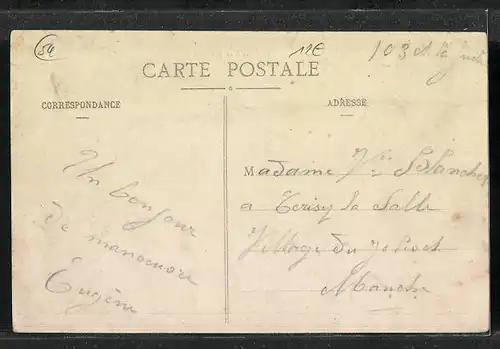 54
12E
103
CARTE POSTALE
CORRESPONDANCE
ADRESSE
Un bonjour
De manoeuvre
Eugène
Madame Vve Blanchet
a Cerisy la Salle
Village du
Manche